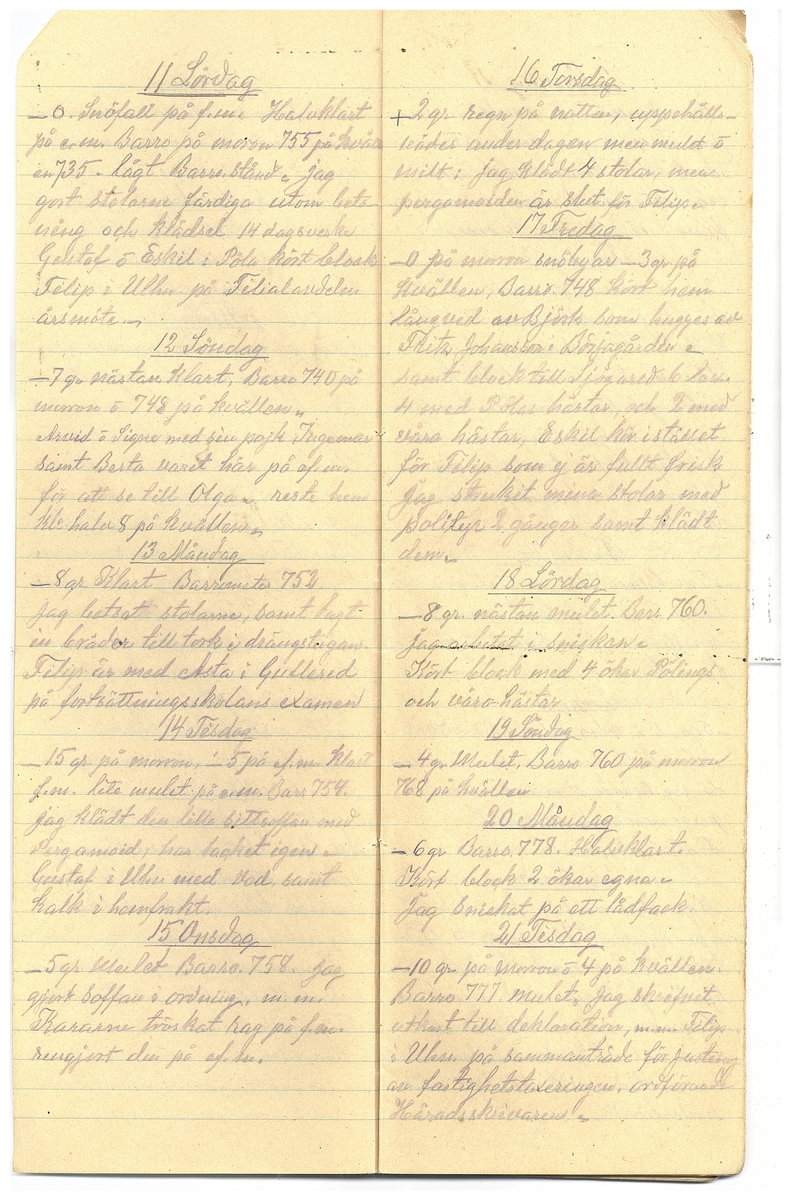 11 Lördag
–0. Snöfall på f.m. Halvklart
på e.m. Barro på morron 755 på kväll
en 735 - lågt Barro. stånd. jag
gort stolarne färdiga utom bets
ning och klädsel 14 dagsverk
Gustaf o Eskil i Pöla kört block
Filip i Ulhn på Filialavdeln
årsmöte.
12 Söndag
–7 gr nästan klart, Barro 740 på
morron o 748 på kvällen
Arvid o Signe med sin pojk, Ingemar
samt Berta varet här på ef.m.
för att se till Olga reste hem
kl. halv 8 på kvällen
13 Måndag
–8 gr Klart Barrometer 752
jag betsat stolarne, samt lagt
in bräder till tork i drängstugan
Filip är med Asta i Gullered
på fortsättningsskolans examen
14 Tisdag
–15 gr på morron, – 5 på ef.m. klart
f.m. lite mulet på e.m. Barr 754.
jag klädt den lilla sittsoffan med
Pergamoid, har locket igen
Gustaf i Ulhn med ved, samt
kalk i hemfrakt.
15 Onsdag
–5 gr Mulet Barro. 758. Jag
gjort soffan i ordning, m.m.
Kararne tröskat rag på f.m.
rengjort den på ef.m.
16 Torsdag
+2 gr regn på natten, uppehålls-
väder under dagen men mulet o
milt; jag klädt 4 stolar, men
pergamoiden är slut för Filip
17 Fredag
–0 på morron snöbyar –3 gr på
kvällen, Barro. 748 kört hem
långved av Björk som hugges av
Fritz Johansson i Börjagården
samt block till Sjögared 6 lass.
4 med Pölas hästar och 2 med
våra hästar, Eskil kör istället
för Filip som ej är fullt frisk
Jag struket mina stolar med
polityr 2 gånger samt klädt
dem
18 Lördag
–8 gr. nästan mulet Barr 760.
jag arbetat i sniskan
Kört block med 4 ökar Pölings
och våra hästar
19 Söndag
–4 gr Mulet, Barro 760 på morron
768 på kvällen
20 Måndag
–6 gr Barro. 778. Halvklart.
Kört block 2 ökar egna
Jag snickat på ett lådfack
21 Tisdag
–10 gr på morron o 4 på kvällen.
Barro 777 mulet, Jag skrifvit
utkast till deklaration, m.m. Filip
i Ulhn. på sammanträde för justering
av fastighetstaxeringen, ordförande
Häradsskrivaren